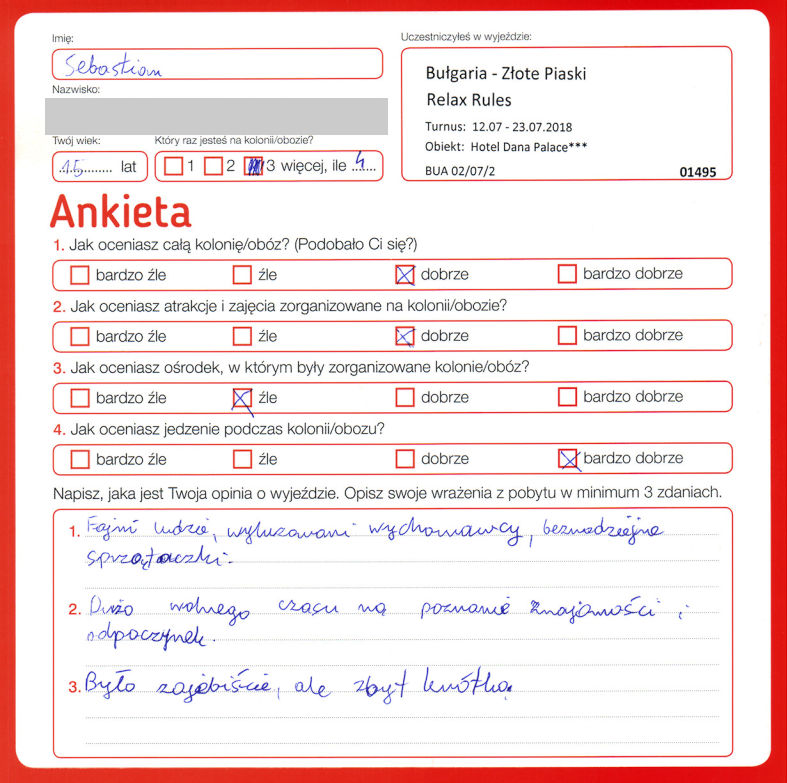 Imię:
Uczestniczyłeś w wyjeździe:
Sebastian
Nazwisko:
Bułgaria - Złote Piaski
Relax Rules
Turnus: 12.07 - 23.07.2018
Obiekt: Hotel Dana Palace***
BUA 02/07/2 01495
Twój wiek: Który raz jesteś na kolonii/obozie?
15 lat 1 2 3 więcej, ile 4
Ankieta
1. Jak oceniasz całą kolonię/obóz? (Podobało Ci się?)
bardzo źle źle dobrze bardzo dobrze
2. Jak oceniasz atrakcje i zajęcia zorganizowane na kolonii/obozie?
bardzo źle źle dobrze bardzo dobrze
3. Jak oceniasz ośrodek, w którym były zorganizowane kolonie/obóz?
bardzo źle źle dobrze bardzo dobrze
4. Jak oceniasz jedzenie podczas kolonii/obozu?
bardzo źle źle dobrze bardzo dobrze
Napisz, jaka jest Twoja opinia o wyjeździe. Opisz swoje wrażenia z pobytu w minimum 3 zdaniach.
1. Fajni ludzie, wyluzowani wychowawcy, beznadziejne
sprzątaczki.
2. Dużo wolnego czasu na poznanie znajomości i
odpoczynek.
3. Było zajebiście, ale zbyt krótko.